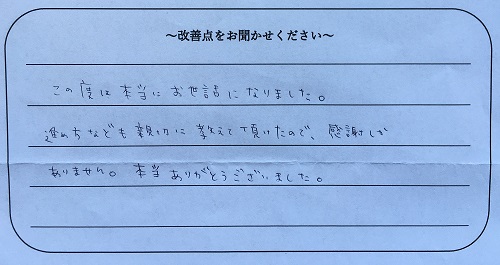 ～改善点をお聞かせください～
この度は本当にお世話になりました。
進め方なども親切に教えて頂けたので、感謝しか
ありません。本当ありがとうございました。